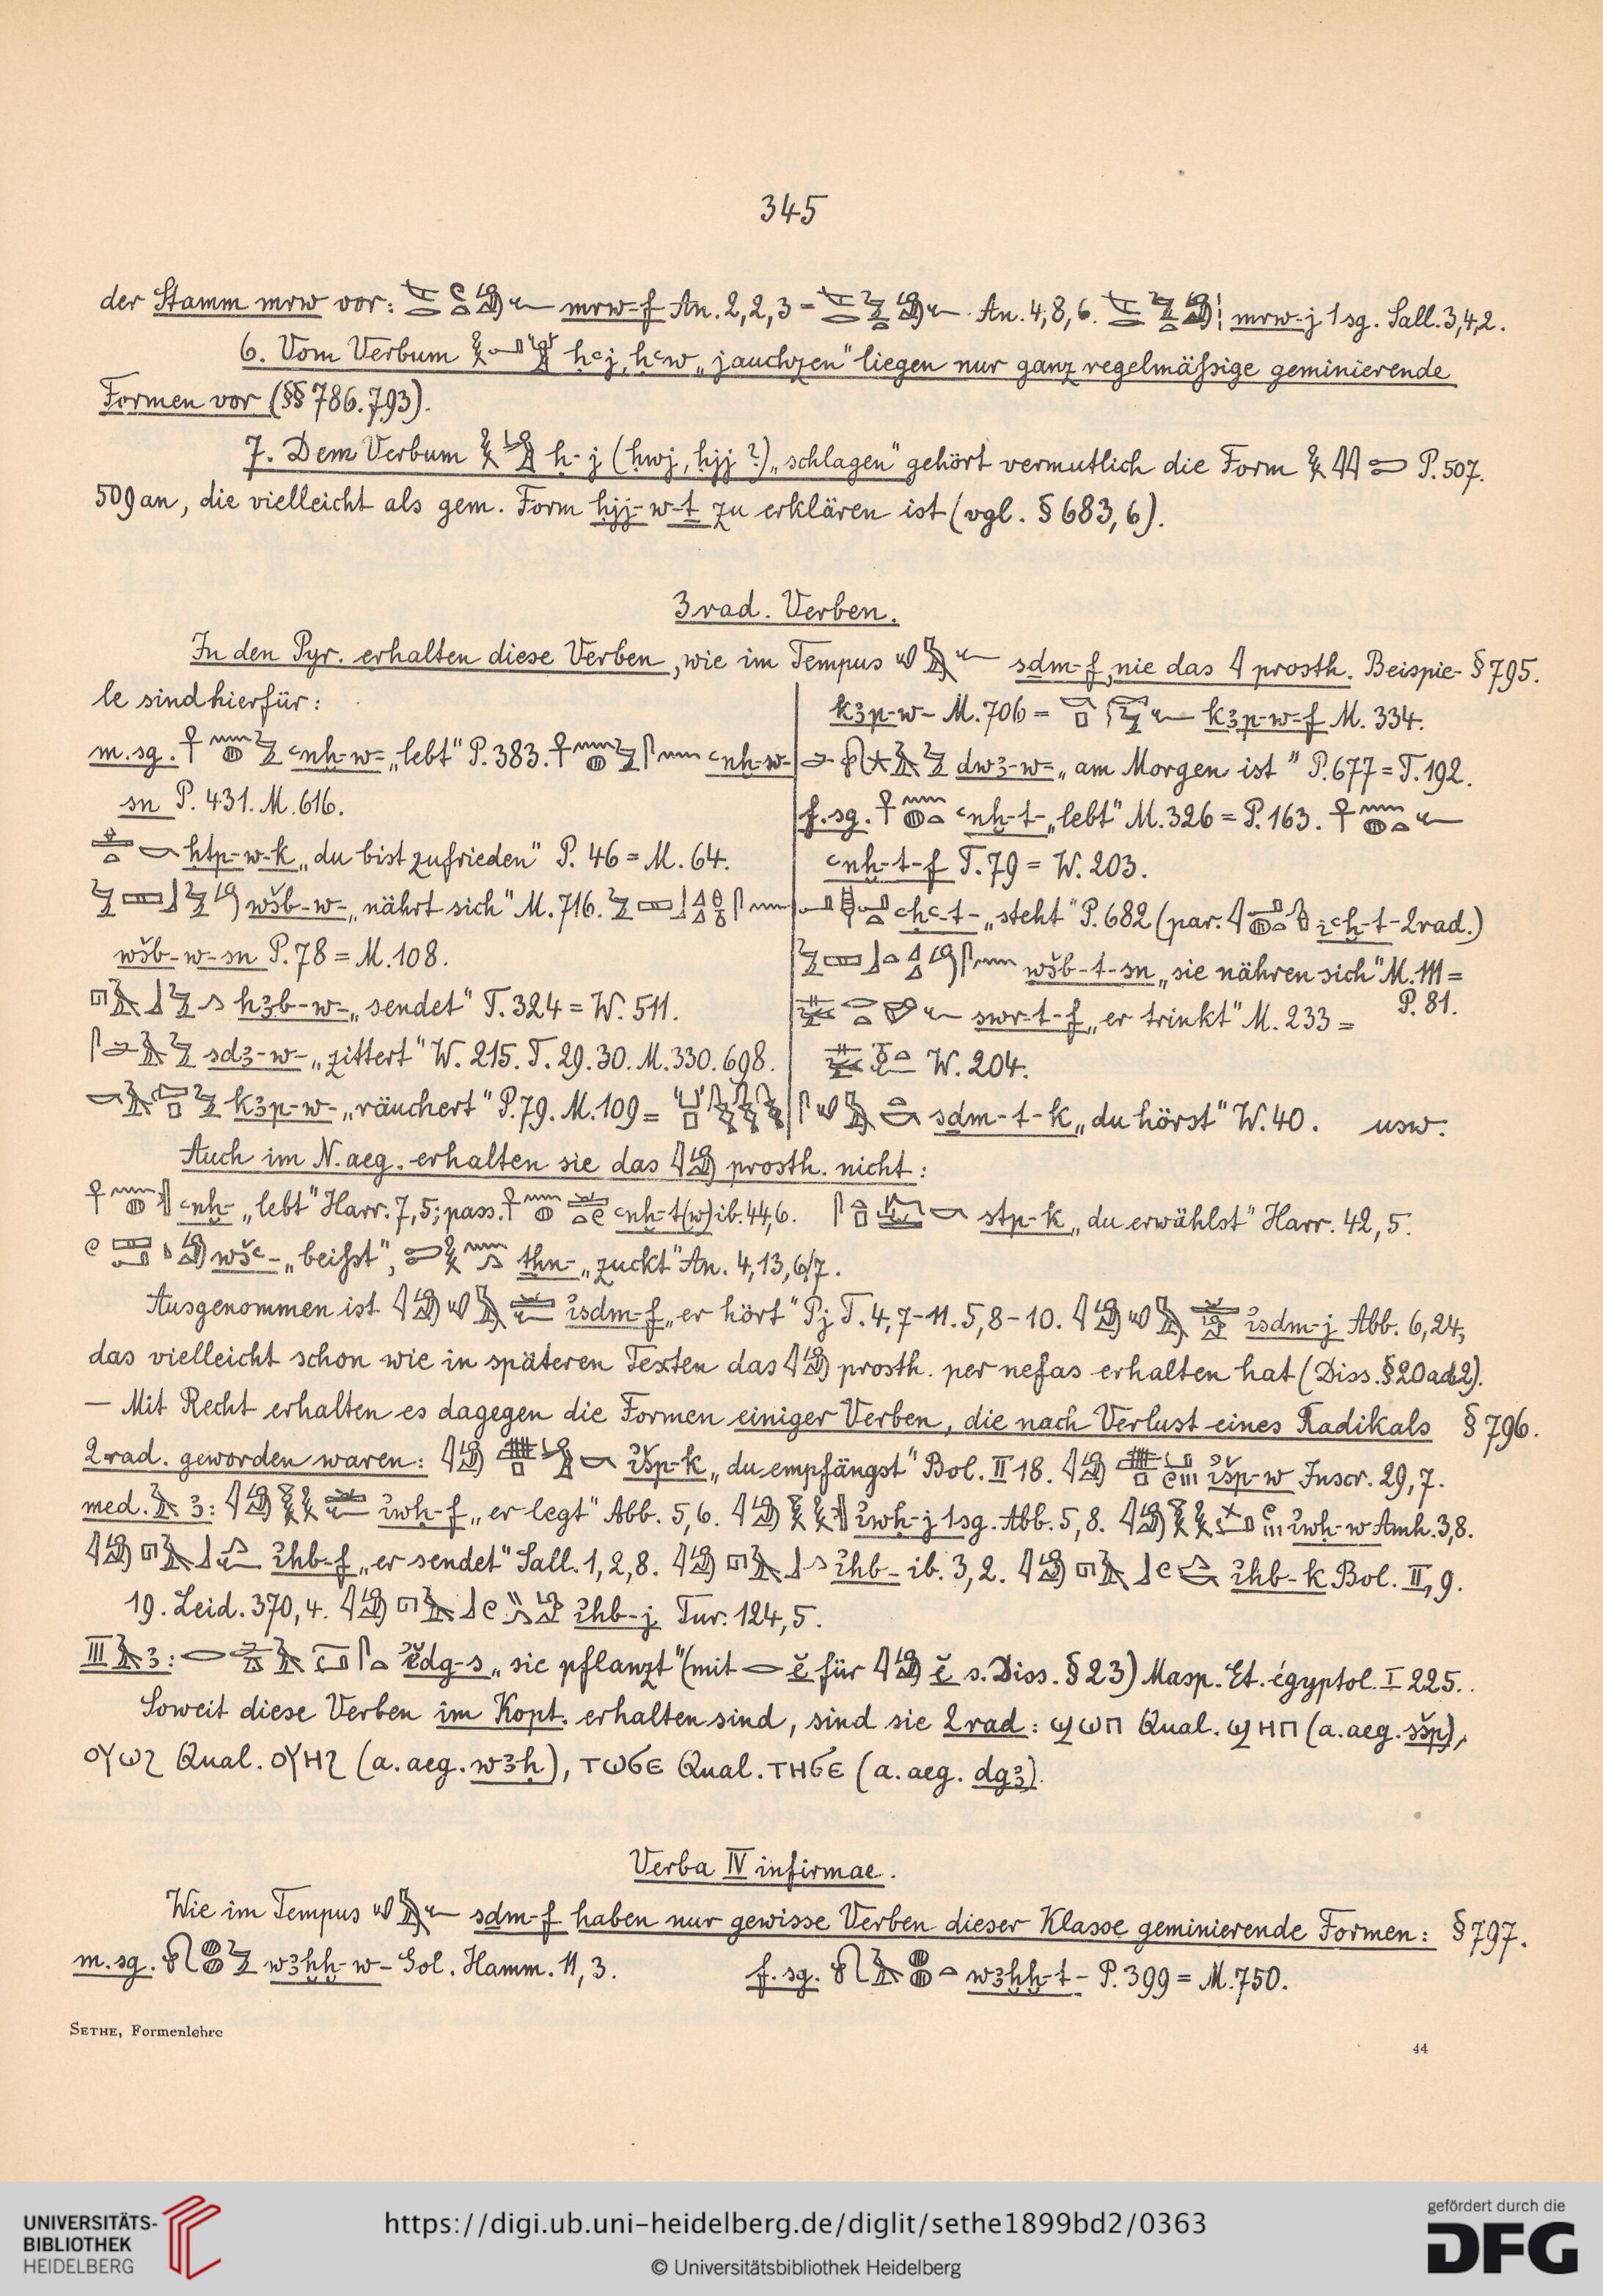 345
der Stamm mrw vor: mrw-f An. 2,2,3 = An. 4,8,6. mrw-j 1sg. Sall. 3,4,2.
6. Vom Verbum ḥꜥj, ḥꜥw „jauchzen“ liegen nur ganz regelmäßige geminierende
Formen vor (§§ 786. 793).
7. Dem Verbum ḥ-j (ḥwj, ḥjj ?) „schlagen“ gehört vermutlich die Form P. 507.
509 an, die vielleicht als gem. Form ḥjj-w-t zu erklären ist (vgl. § 683, 6).
3rad. Verben.
In den Pyr. erhalten diese Verben, wie im Tempus sḏm-f, nie das prosth. Beispie- § 795.
le sind hierfür:
m. sg. ꜥnḫ-w- „lebt“ P. 383. ꜥnḫ-w-
sn P. 431. M. 616.
ḥtp-w-k „du bist zufrieden“ P. 46 = M. 64.
wšb-w- „nährt sich“ M. 716.
wšb-w-sn P. 78 = M. 108.
hꜣb-w- „sendet“ T. 324 = W. 511.
sdꜣ-w- „zittert“ W. 215. T. 29. 30. M. 330. 698.
kꜣp-w- „räuchert“ P. 79. M. 109 =
kꜣp-w- M. 706 = kꜣp-w-f M. 334.
dwꜣ-w- „am Morgen ist“ P. 677 = T. 192.
f. sg. ꜥnḫ-t- „lebt“ M. 326 = P. 163.
ꜥnḫ-t-f T. 79 = W. 203.
ꜥḥꜥ-t- „steht“ P. 682 (par. 2rad.)
wšb-t-sn „sie nähren sich“ M. 111 =
P. 81.
swr-t-f „er trinkt“ M. 233 =
W. 204.
sḏm-t-k „du hörst“ W. 40. usw.
Auch im N. aeg. erhalten sie das prosth. nicht:
ꜥnḫ- „lebt“ Harr. 7,5; pass. ꜥnḫ-t(w) ib. 44,6. stp-k „du erwählst“ Harr. 42,5.
wšꜥ- „beißt“, thn- „zuckt“ An. 4,13,6/7.
Ausgenommen ist ỉsdm-f „er hört“ Pj T. 4,7-11. 5,8-10. ỉsdm-j Abb. 6,24,
das vielleicht schon wie in späteren Texten das prosth. per nefas erhalten hat (Diss. § 20 ad 2).
— Mit Recht erhalten es dagegen die Formen einiger Verben, die nach Verlust eines Radikals § 796.
2rad. geworden waren: ỉšp-k „du empfängst“ Bol. II 18. ỉšp-w Inscr. 29,7.
med. ꜣ: ỉwḥ-f „er legt“ Abb. 5,6. ỉwḥ-j 1sg. Abb. 5,8. ỉwḥ-w Amh. 3,8.
ỉhb-f „er sendet“ Sall. 1,2,8. ỉhb- ib. 3,2. ỉhb-k Bol. II, 9.
19. Leid. 370,4. ỉhb-j Tur. 124,5.
III ꜣ: ĕdg-s „sie pflanzt“ (mit ĕ für ĕ s. Diss. § 23) Masp. Et. égyptol. I 225.
Soweit diese Verben im Kopt. erhalten sind, sind sie 2rad: ϣⲱⲡ Qual. ϣⲏⲡ (a. aeg. sšp),
ⲟⲩⲱϩ Qual. ⲟⲩⲏϩ (a. aeg. wꜣḥ), ⲧⲱϭⲉ Qual. ⲧⲏϭⲉ (a. aeg. dgꜣ).
Verba IV infirmae.
Wie im Tempus sḏm-f haben nur gewisse Verben dieser Klasse geminierende Formen: § 797.
m. sg. wꜣḫḫ-w- Gol. Hamm. 11, 3. f. sg. wꜣḫḫ-t- P. 399 = M. 750.
SETHE, Formenlehre
44
UNIVERSITÄTS-
BIBLIOTHEK
HEIDELBERG
https://digi.ub.uni-heidelberg.de/diglit/sethe1899bd2/0363
© Universitätsbibliothek Heidelberg
gefördert durch die
DFG